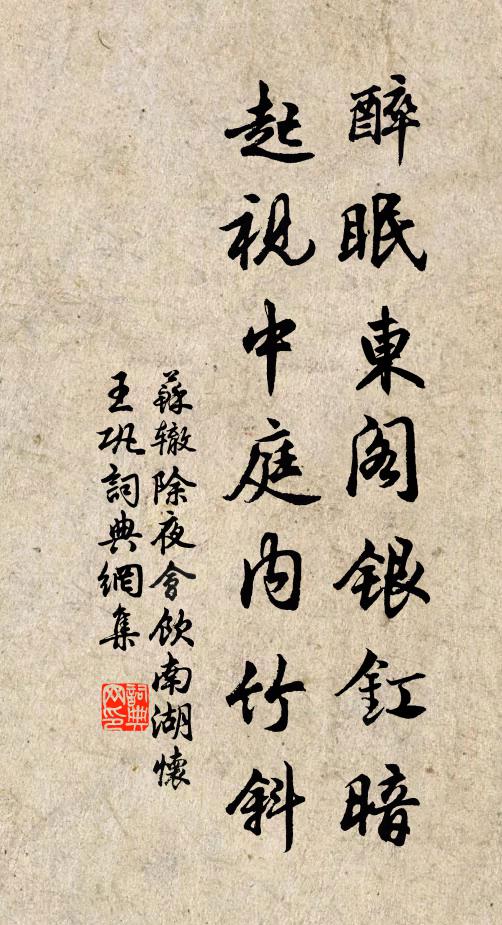 醉眠東閣銀釭暗
起視中庭內竹斜
蘇辙除夜會飲南湖懷
王巩詞典網集
詞典网印